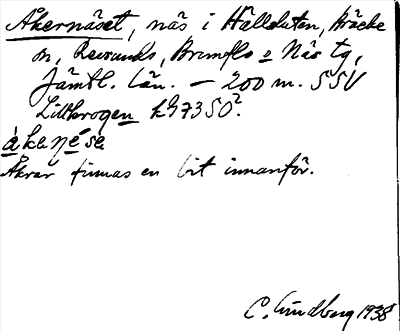 Åkernäset, näs i Hällsluten, Bräcke
sn, Revsunds, Brunflo o Näs tg,
Jämtl. län. — 200 m. SSV
Lillkrogen
åkenésa
Åkrar finnas en bit innanför.
C. Lindberg 1938